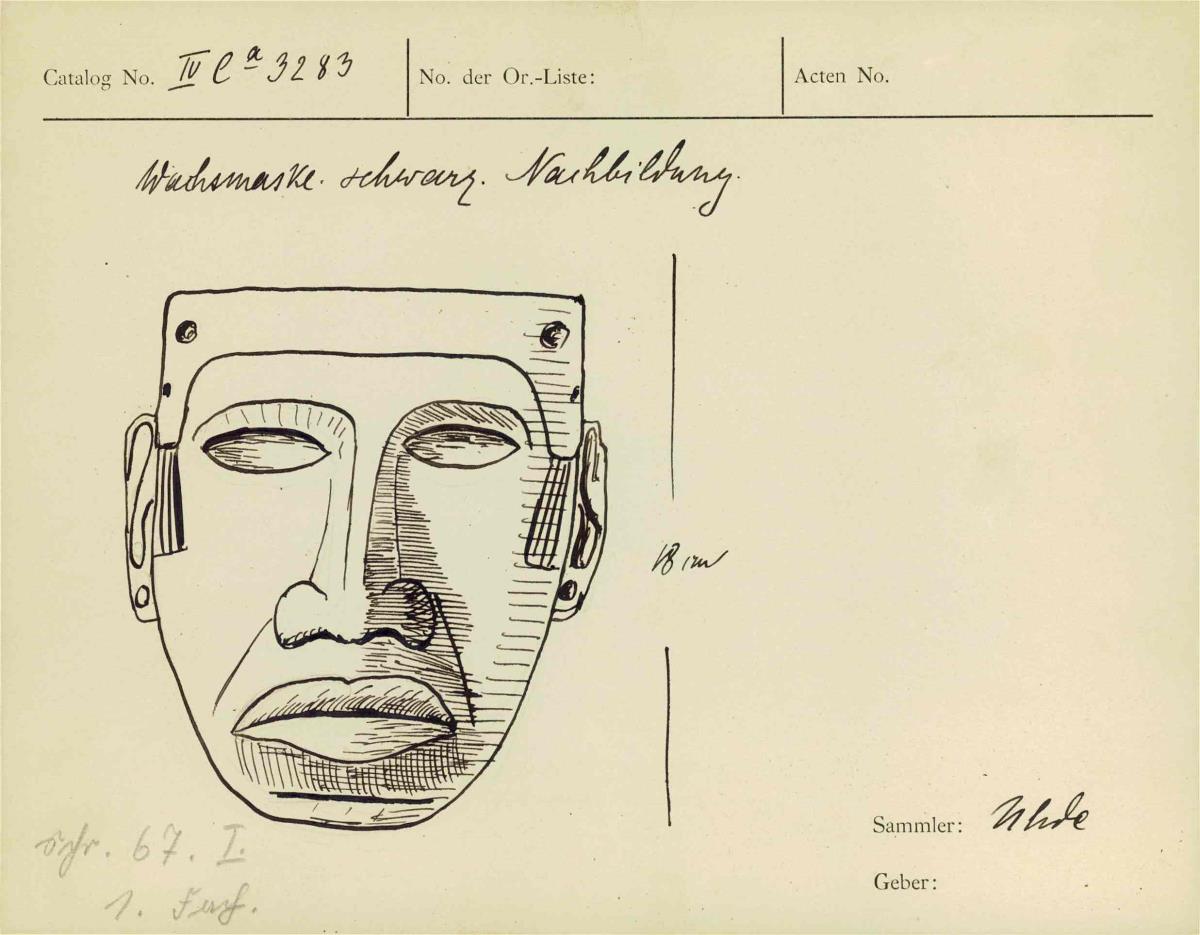 Catalog No. IV Ca 3283 No. der Or.-Liste: Acten No.
Wachsmaske. schwarz. Nachbildung.
18 cm
Sammler: Uhde
Geber:
Schr. 67. I.
1. Fach.